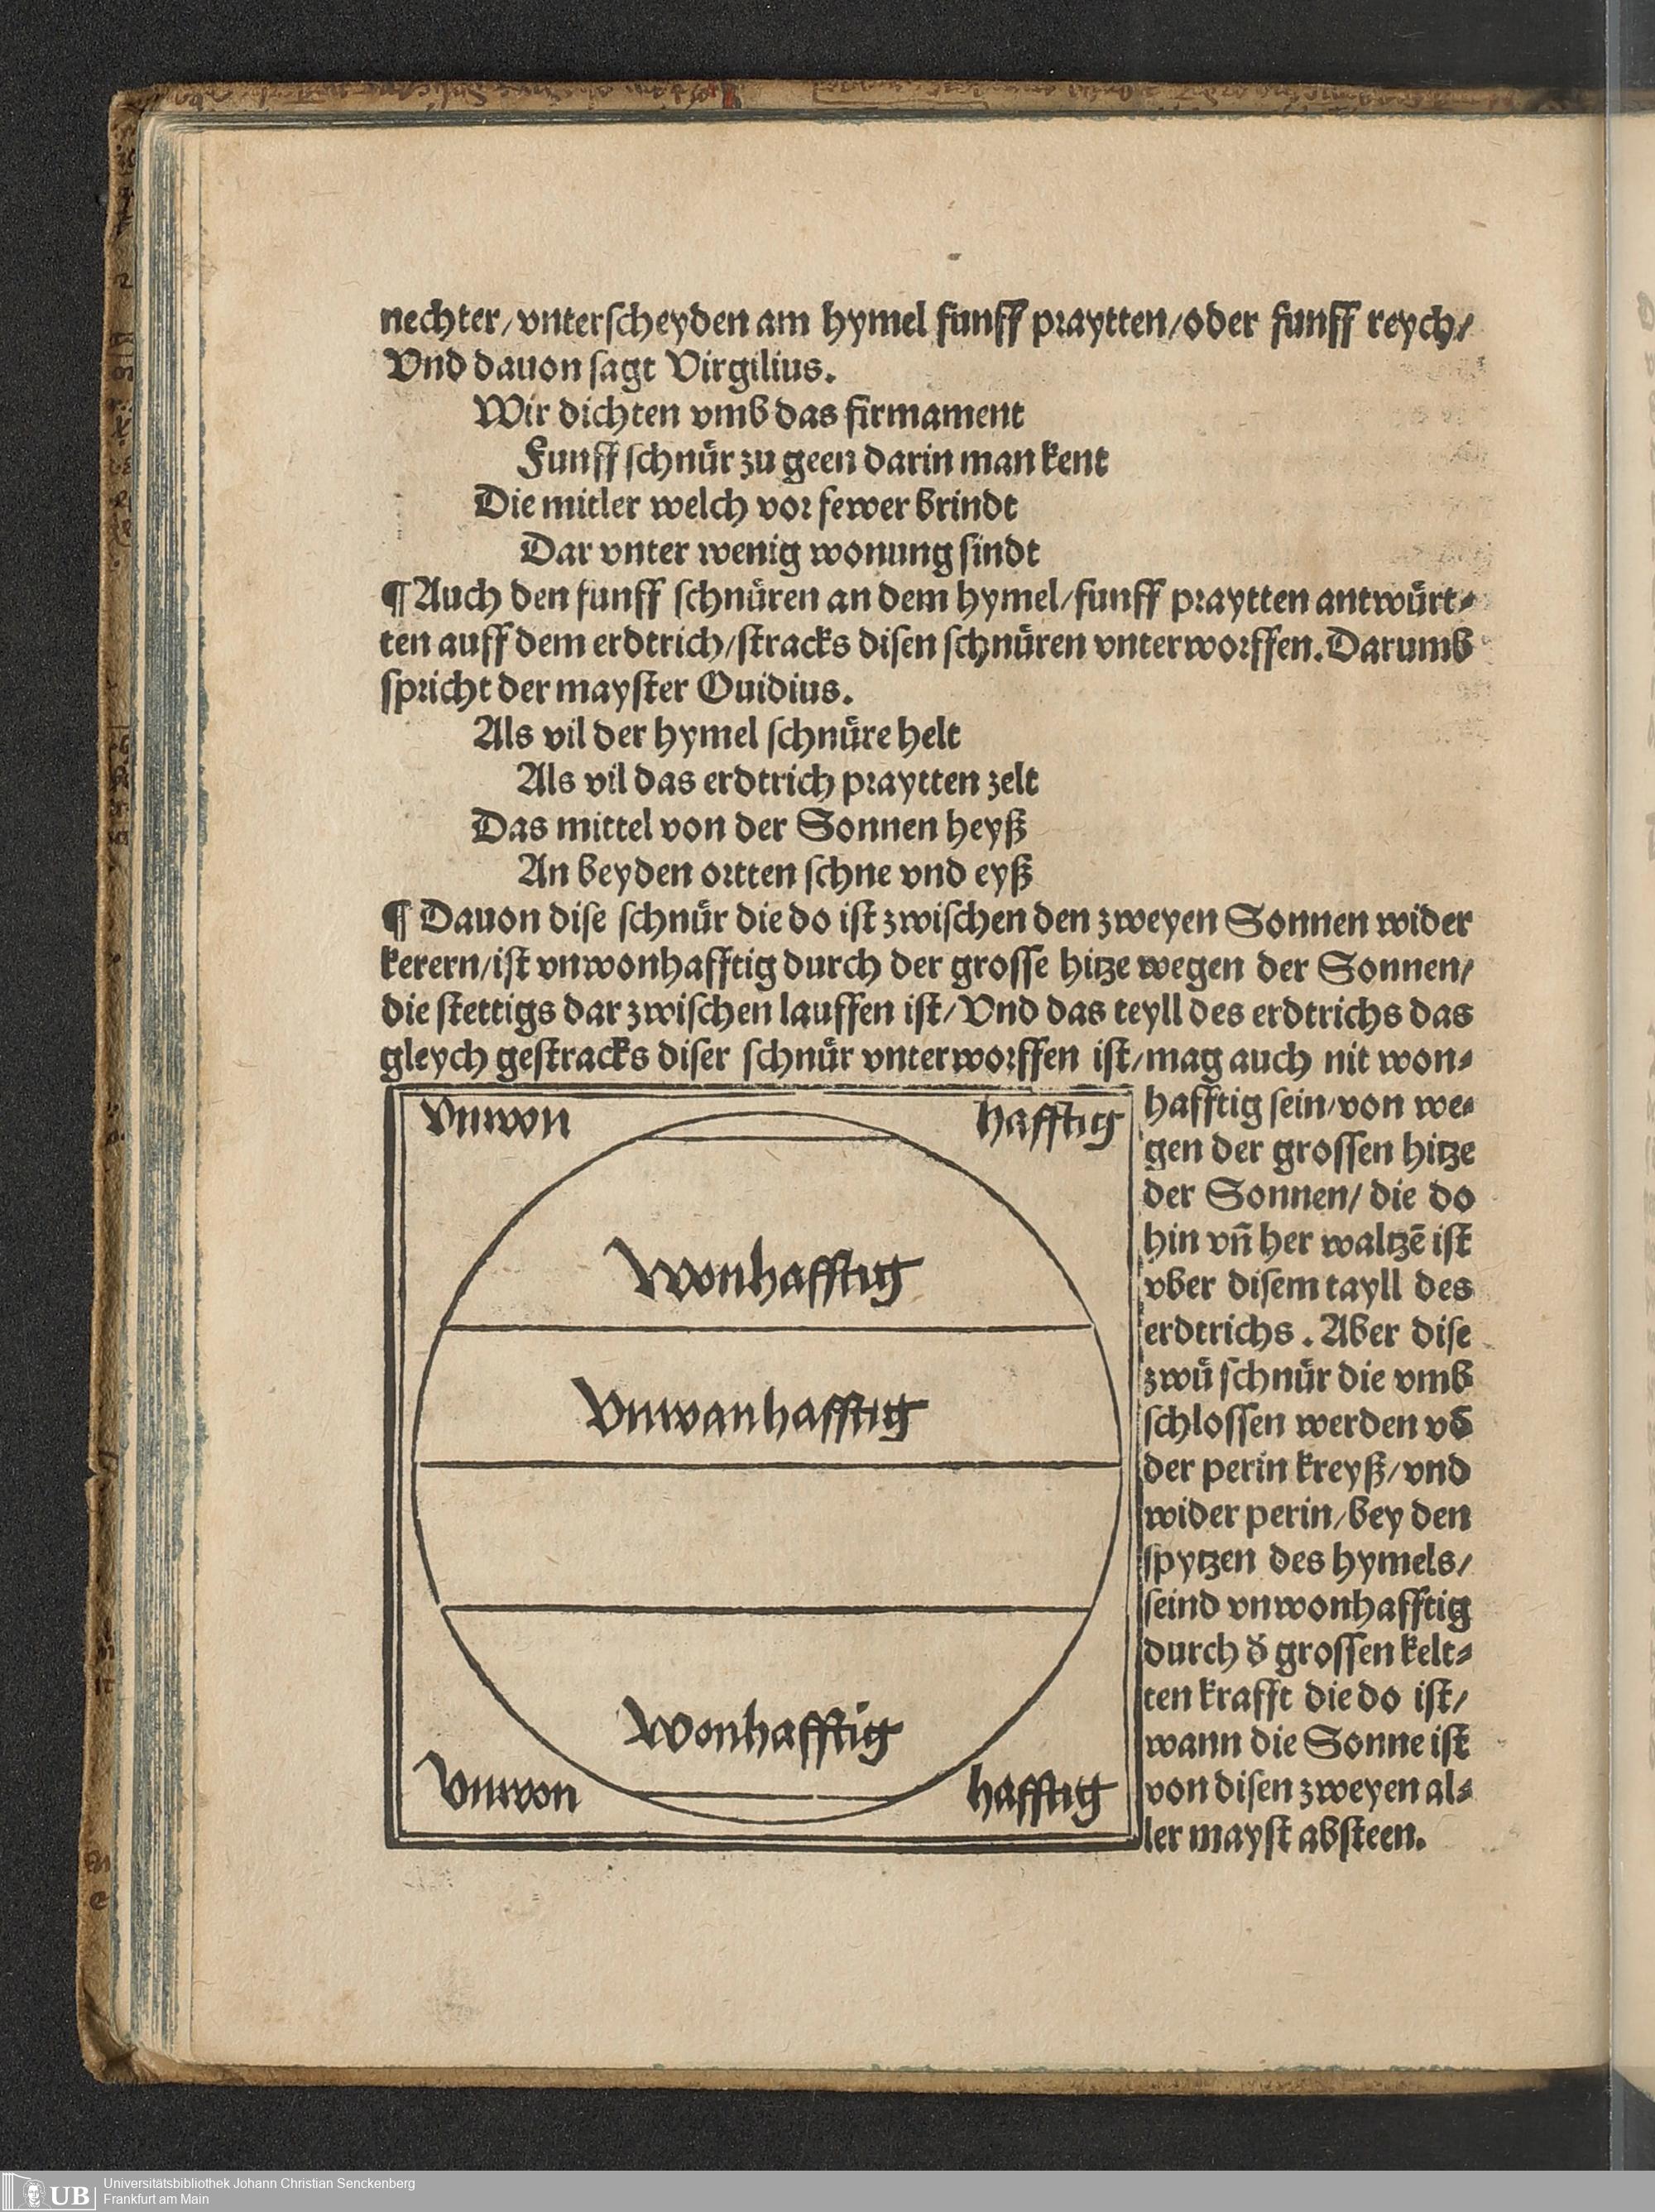 nechter/vnterſcheyden am hymel funff praytten/oder funff reych/
Vnd dauon ſagt Virgilius.
Wir dichten vmb das firmament
Funff ſchnuͤr zu geen darin man kent
Die mitler welch vor fewer brindt
Dar vnter wenig wonung ſindt
¶ Auch den funff ſchnuͤren an dem hymel/funff praytten antwuͤrt⸗
ten auff dem erdtrich/ſtracks diſen ſchnuͤren vnterworffen. Darumb
ſpricht der mayſter Ouidius.
Als vil der hymel ſchnuͤre helt
Als vil das erdtrich praytten zelt
Das mittel von der Sonnen heyß
An beyden ortten ſchne vnd eyß
¶ Dauon diſe ſchnuͤr die do iſt zwiſchen den zweyen Sonnen wider
kerern/iſt vnwonhafftig durch der groſſe hitze wegen der Sonnen/
die ſtettigs dar zwiſchen lauffen iſt/Vnd das teyll des erdtrichs das
gleych geſtracks diſer ſchnuͤr vnterworffen iſt/mag auch nit won⸗
hafftig ſein/von we⸗
gen der groſſen hitze
der Sonnen/ die do
hin vñ her waltzē iſt
vber diſem tayll des
erdtrichs. Aber diſe
zwuͤ ſchnuͤr die vmb
ſchloſſen werden vō
der perin kreyß/vnd
wider perin/bey den
ſpytzen des hymels/
ſeind vnwonhafftig
durch d̕ groſſen kelt⸗
ten krafft die do iſt/
wann die Sonne iſt
von diſen zweyen al⸗
ler mayſt abſteen.
Vnwon hafftig
Wonhafftig
Vnwanhafftig
Wonhafftig
Vnwon hafftig
UB Universitätsbibliothek Johann Christian Senckenberg
Frankfurt am Main